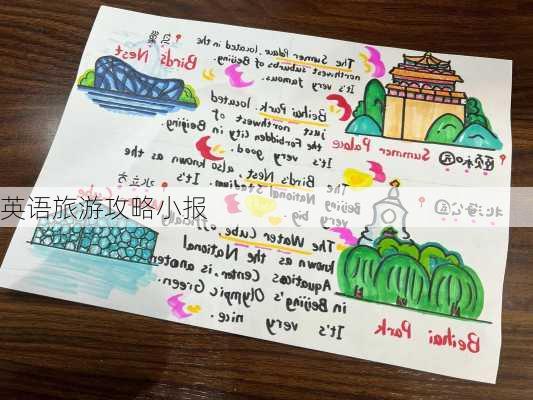 鸟巢
Birds Nest
The Sumner Palace, located in the
northwest suburbs of Beijing.
It's very famous.
Summer Palace
颐和园
Beihai Park, located
just northwest of
the Forbidden City in Beijing.
It's very good.
The Birds Nest, also known as the
Beijing National Stadium. It's
very big
北海公园
Beihai Park
水立方
Cube
The Water Cube,
known as the National
Aquatics Center, is another
in Beijing's Olympic Green.
It's very nice.
英语旅游攻略小报